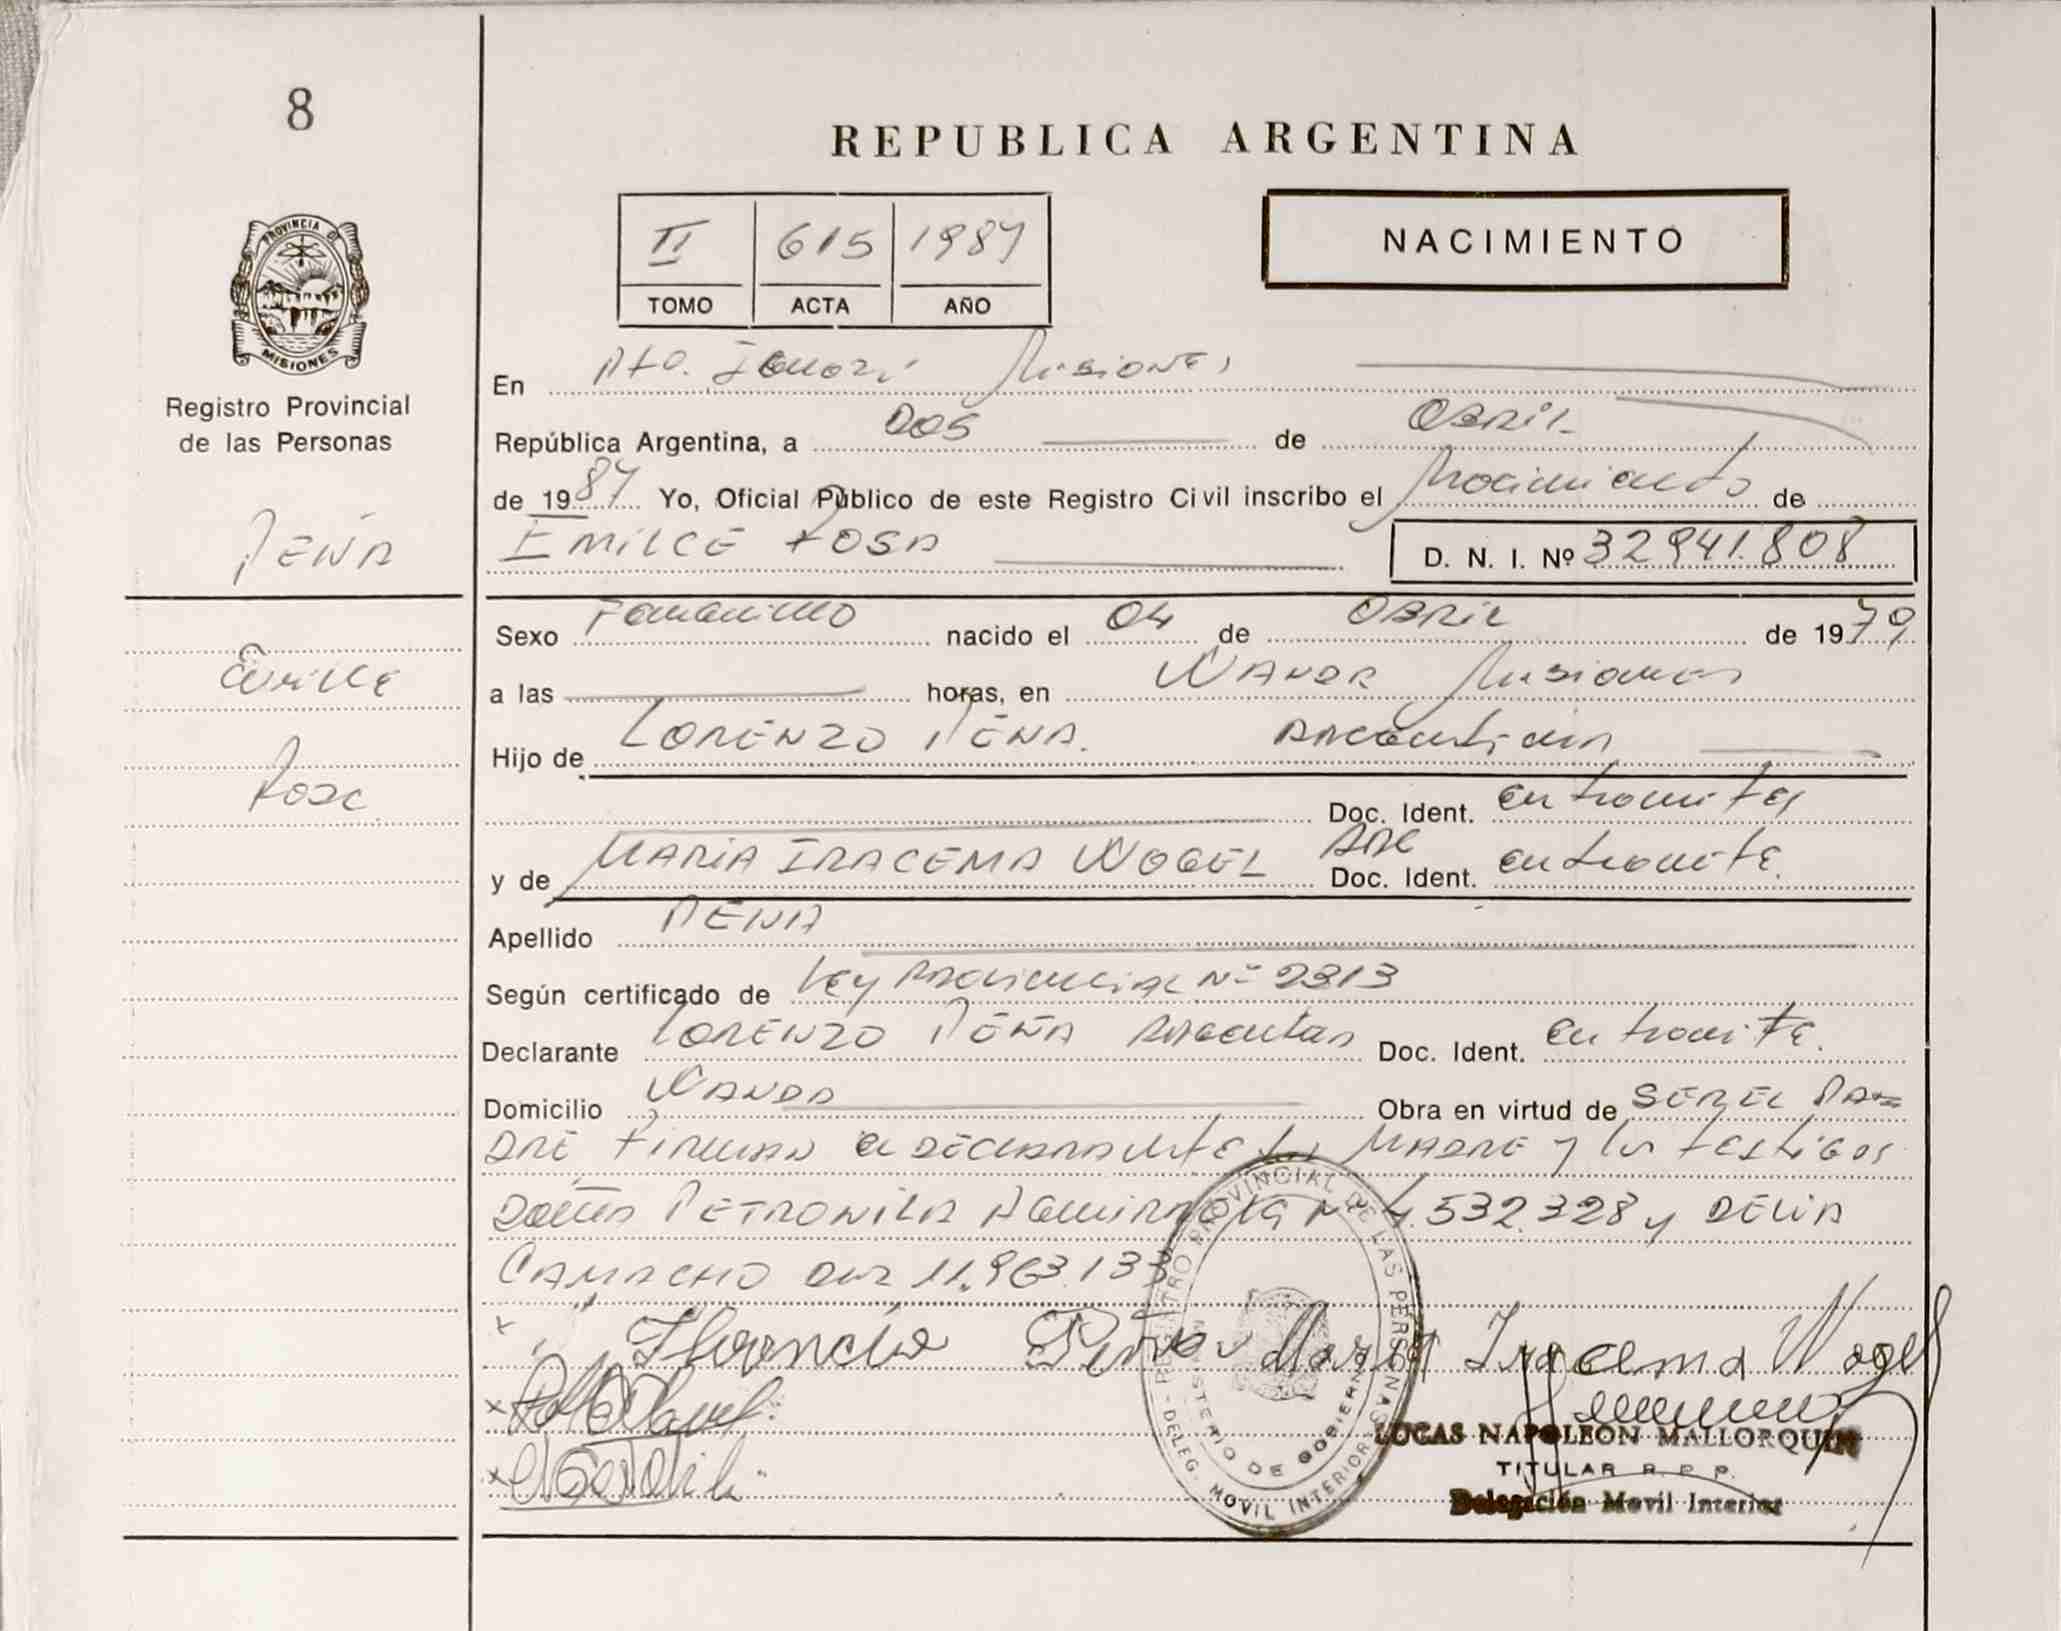 8
REPUBLICA ARGENTINA
II 615 1987
TOMO ACTA AÑO
NACIMIENTO
PROVINCIA DE
MISIONES
Registro Provincial
de las Personas
PEÑA
Emilce
Rosa
En Pto. Misiones
República Argentina, a DOS de ABRIL
de 1987 Yo, Oficial Público de este Registro Civil inscribo el Nacimiento de
EMILCE ROSA D. N. I. Nº 32941.808
Sexo Femenino nacido el 04 de ABRIL de 1979
a las horas, en WANDA Misiones
Hijo de LORENZO PEÑA. ARGENTINA
Doc. Ident. en tramite
y de MARIA IRACEMA WOGEL ARG Doc. Ident. en tramite.
Apellido PEÑA
Según certificado de Ley PROVINCIAL Nº 2313
Declarante LORENZO PEÑA Doc. Ident. en tramite.
Domicilio WANDA Obra en virtud de SER EL PA=
DRE Firman el DECLARANTE la MADRE y los testigos
Doña PETRONILA Nº 4.532.328 y DELIA
CAMACHO DNI 11.963.133
Peña Maria Iracema Wogel
REGISTRO PROVINCIAL DE LAS PERSONAS
MINISTERIO DE GOBIERNO
DELEG. MOVIL INTERIOR
LUCAS NAPOLEON MALLORQUIN
TITULAR R. P. P.
Delegación Movil Interior